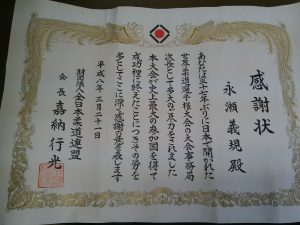 感謝状
永瀬義規殿
あなたは三十七年ぶりに日本で開かれた
世界柔道選手権大会の大会事務局
次長として多大のご尽力をされました
本大会が史上最大の参加国を得て
成功裡に終えたことにつきその労を
多としてここに深く感謝の意を表します
平成八年三月二十一日
財団法人全日本柔道連盟
会長 嘉納行光